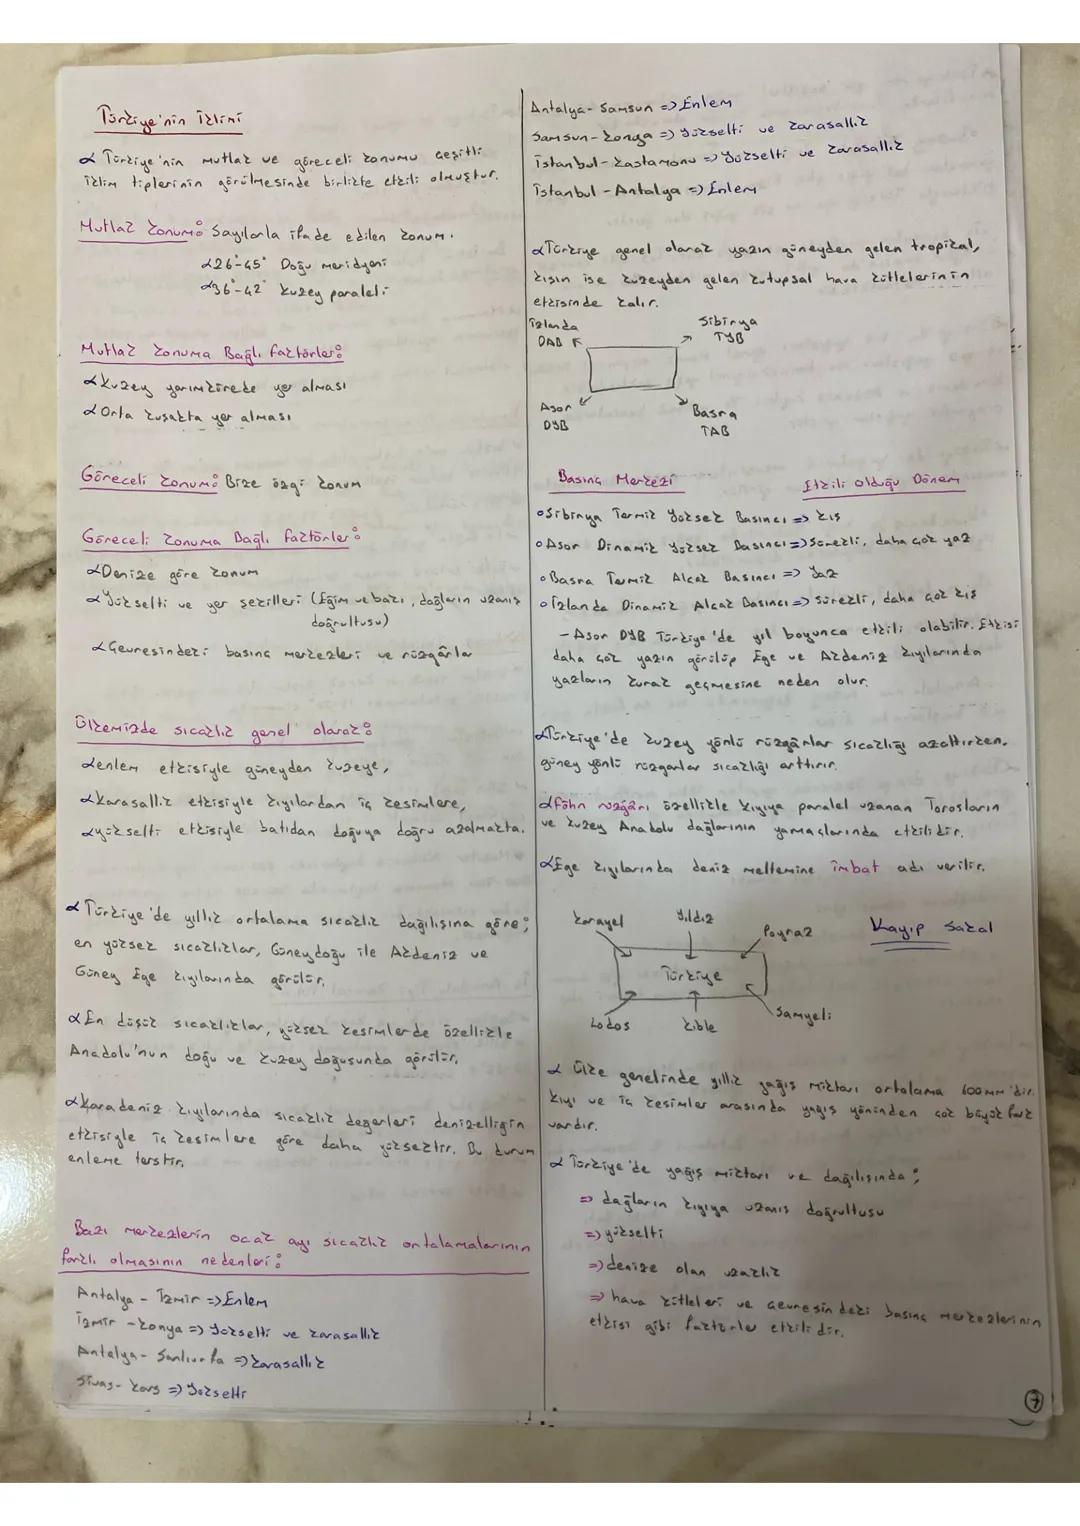 Türkiye'nin İklimi
Türkiye'nin mutlak ve göreceli konumu çeşitli
iklim tiplerinin görülmesinde birlikte etkili olmuştur.
Mutlak Konum: Sayılarla ifade edilen konum.
26°-45° Doğu meridyeni
36°-42° kuzey paraleli
Mutlak Konuma Bağlı faktörler:
Kuzey yarımkürede yer alması
Orta kuşakta yer alması
Göreceli Konum: Bize özgü konum
Göreceli Konuma Bağlı faktörler:
Denize göre konum
Yükselti ve yer şekilleri (Eğim ve bakı, dağların uzanış
doğrultusu)
Çevresindeki basınç merkezleri ve rüzgârlar
Ülkemizde sıcaklık genel olarak:
enlem etkisiyle güneyden kuzeye,
karasallık etkisiyle kıyılardan iç kesimlere,
yükselti etkisiyle batıdan doğuya doğru azalmakta.
Türkiye'de yıllık ortalama sıcaklık dağılışına göre;
en yüksek sıcaklıklar, Güneydoğu ile Akdeniz ve
Güney Ege kıyılarında görülür.
En düşük sıcaklıklar, yüksek kesimlerde özellikle
Anadolu'nun doğu ve kuzey doğusunda görülür.
Karadeniz kıyılarında sıcaklık değerleri denizelliğin
etkisiyle iç kesimlere göre daha yüksektir. Bu durum
enleme terstir.
Bazı merkezlerin ocak ayı sıcaklık ortalamalarının
farklı olmasının nedenleri:
Antalya - İzmir => Enlem
İzmir - Konya => Yükselti ve karasallık
Antalya - Şanlıurfa => Karasallık
Sivas - Kars => Yükselti
Antalya - Samsun => Enlem
Samsun - Konya => Yükselti ve karasallık
İstanbul - Kastamonu => Yükselti ve karasallık
İstanbul - Antalya => Enlem
Türkiye genel olarak yazın güneyden gelen tropikal,
kışın ise kuzeyden gelen kutupsal hava kütlelerinin
etkisinde kalır.
İzlanda Sibirya
DAB TYB
Asor Basra
DYB TAB
Basınç Merkezi Etkili Olduğu Dönem
Sibirya Termik Yüksek Basıncı => Kış
Asor Dinamik Yüksek Basıncı => Sürekli, daha çok yaz
Basra Termik Alçak Basıncı => Yaz
İzlanda Dinamik Alçak Basıncı => Sürekli, daha çok kış
- Asor DYB Türkiye'de yıl boyunca etkili olabilir. Etkisi
daha çok yazın görülüp Ege ve Akdeniz kıyılarında
yazların kurak geçmesine neden olur.
Türkiye'de kuzey yönlü rüzgârlar sıcaklığı azaltırken,
güney yönlü rüzgarlar sıcaklığı arttırır.
föhn rüzgârı özellikle kıyıya paralel uzanan Torosların
ve Kuzey Anadolu dağlarının yamaçlarında etkilidir.
Ege kıyılarında deniz meltemine imbat adı verilir.
Karayel Yıldız Poyraz Kayıp Sakal
Türkiye
Lodos Kıble Samyeli
Ülke genelinde yıllık yağış miktarı ortalama 600 mm'dir.
Kıyı ve iç kesimler arasında yağış yönünden çok büyük fark
vardır.
Türkiye'de yağış miktarı ve dağılışında;
=> dağların kıyıya uzanış doğrultusu
=> yükselti
=> denize olan uzaklık
=> hava kütleleri ve çevresindeki basınç merkezlerinin
etkisi gibi faktörler etkilidir.
7